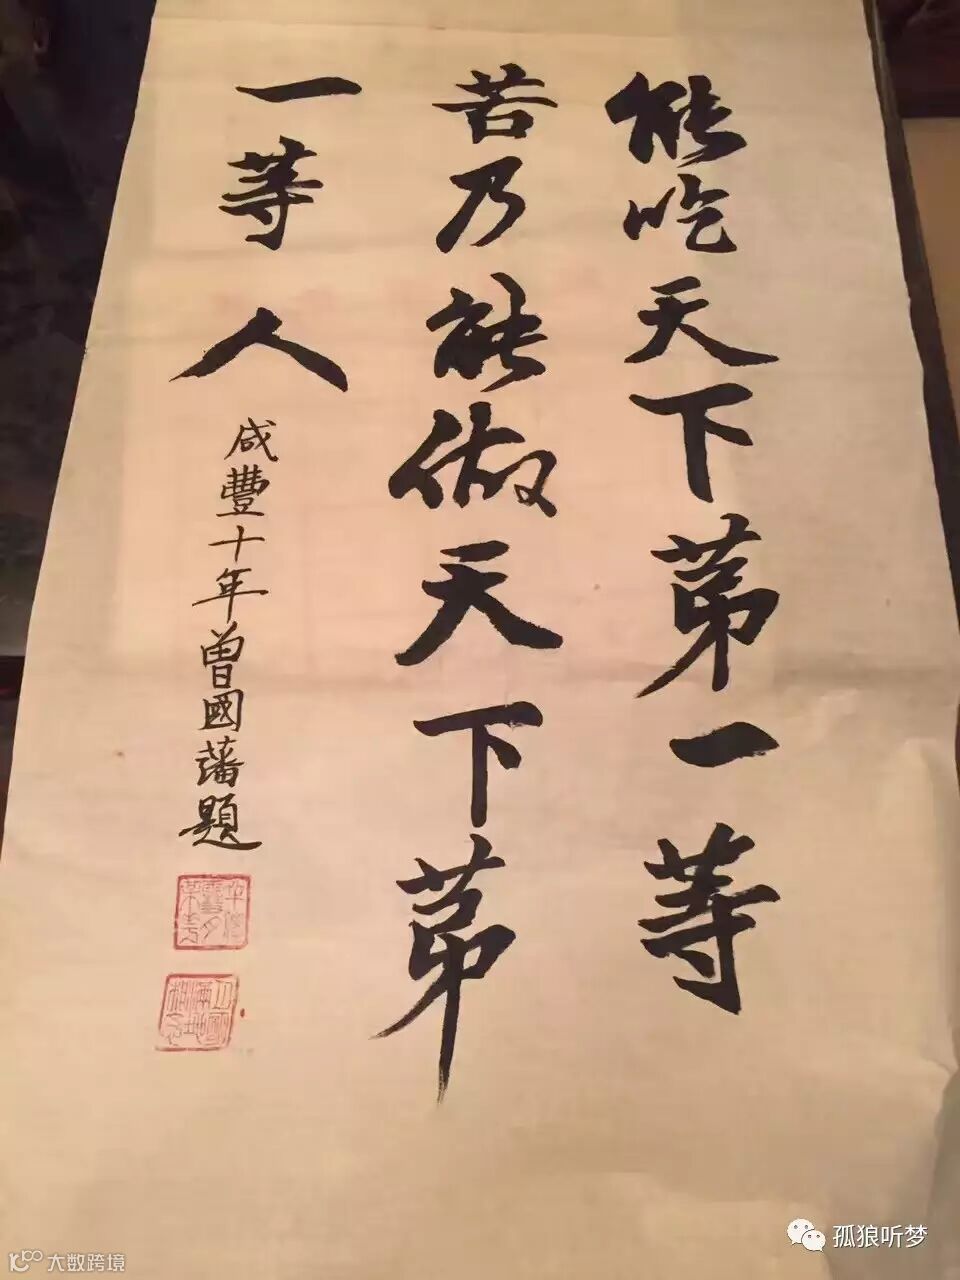 能吃天下第一等
苦乃能做天下第
一等人
咸豐十年曾國藩題
孤狼听梦
大数跨境